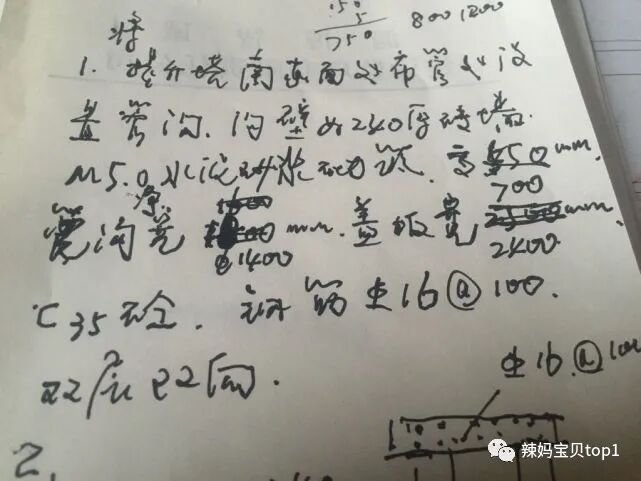 50
5
750
800 1200
将
1. 提升塔南面处布管处设
置管沟.沟壁为240厚砖墙.
M5.0水泥砂浆砌筑.高550mm.
700
管沟宽 mm.盖板宽 mm.
1400 2400
C35砼.钢筋⏀16@100.
双层双向.
⏀16@100
2.
辣妈宝贝top1